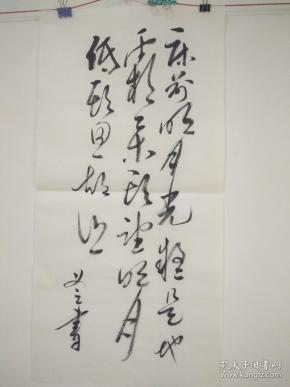 床前明月光疑是地
霜举头望明月
低头思故乡
义之书
孔夫子旧书网
www.kongfz.com